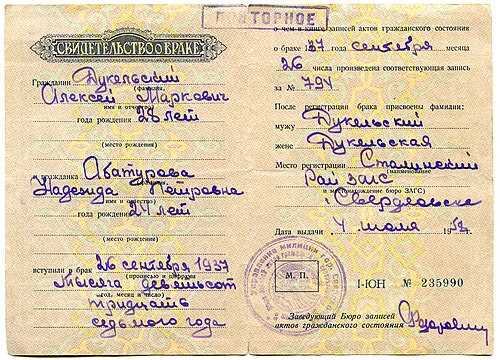 ПОВТОРНОЕ
СВИДЕТЕЛЬСТВО О БРАКЕ
Гражданин Дукельский
(фамилия,
Алексей Маркович
имя и отчество)
года рождения 28 лет
(место рождения)
гражданка Абатурова
(фамилия,
Надежида Петровна
имя и отчество)
года рождения 24 лет
(место рождения)
вступили в брак 26 сентября 1937
(прописью и цифрами
Тысяча девятьсот
год, месяц и число)
тридцать
седьмого года
о чем в книге записей актов гражданского состояния
о браке 1937 года сентября месяца
26 числа произведена соответствующая запись
за № 794
После регистрации брака присвоены фамилии:
мужу Дукельский
жене Дукельская
Место регистрации Сталинский
(наименование
Рай ЗАГС
и местонахождение бюро ЗАГС)
г. Свердловска
Дата выдачи 4 июля 195
М. П.
I-ЮН № 235990
Заведующий Бюро записей
актов гражданского состояния